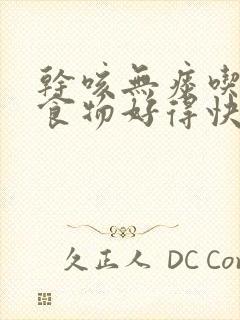 乾咳無痰喫
食物好得快
久正人 DC Con